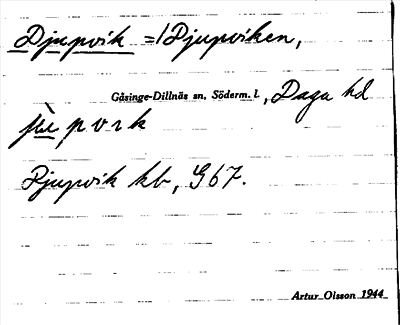 Djupvik = Djupviken,
Gåsinge-Dillnäs sn, Söderm. l., Daga hd
Djupvik kb, G 67.
Artur Olsson 1944